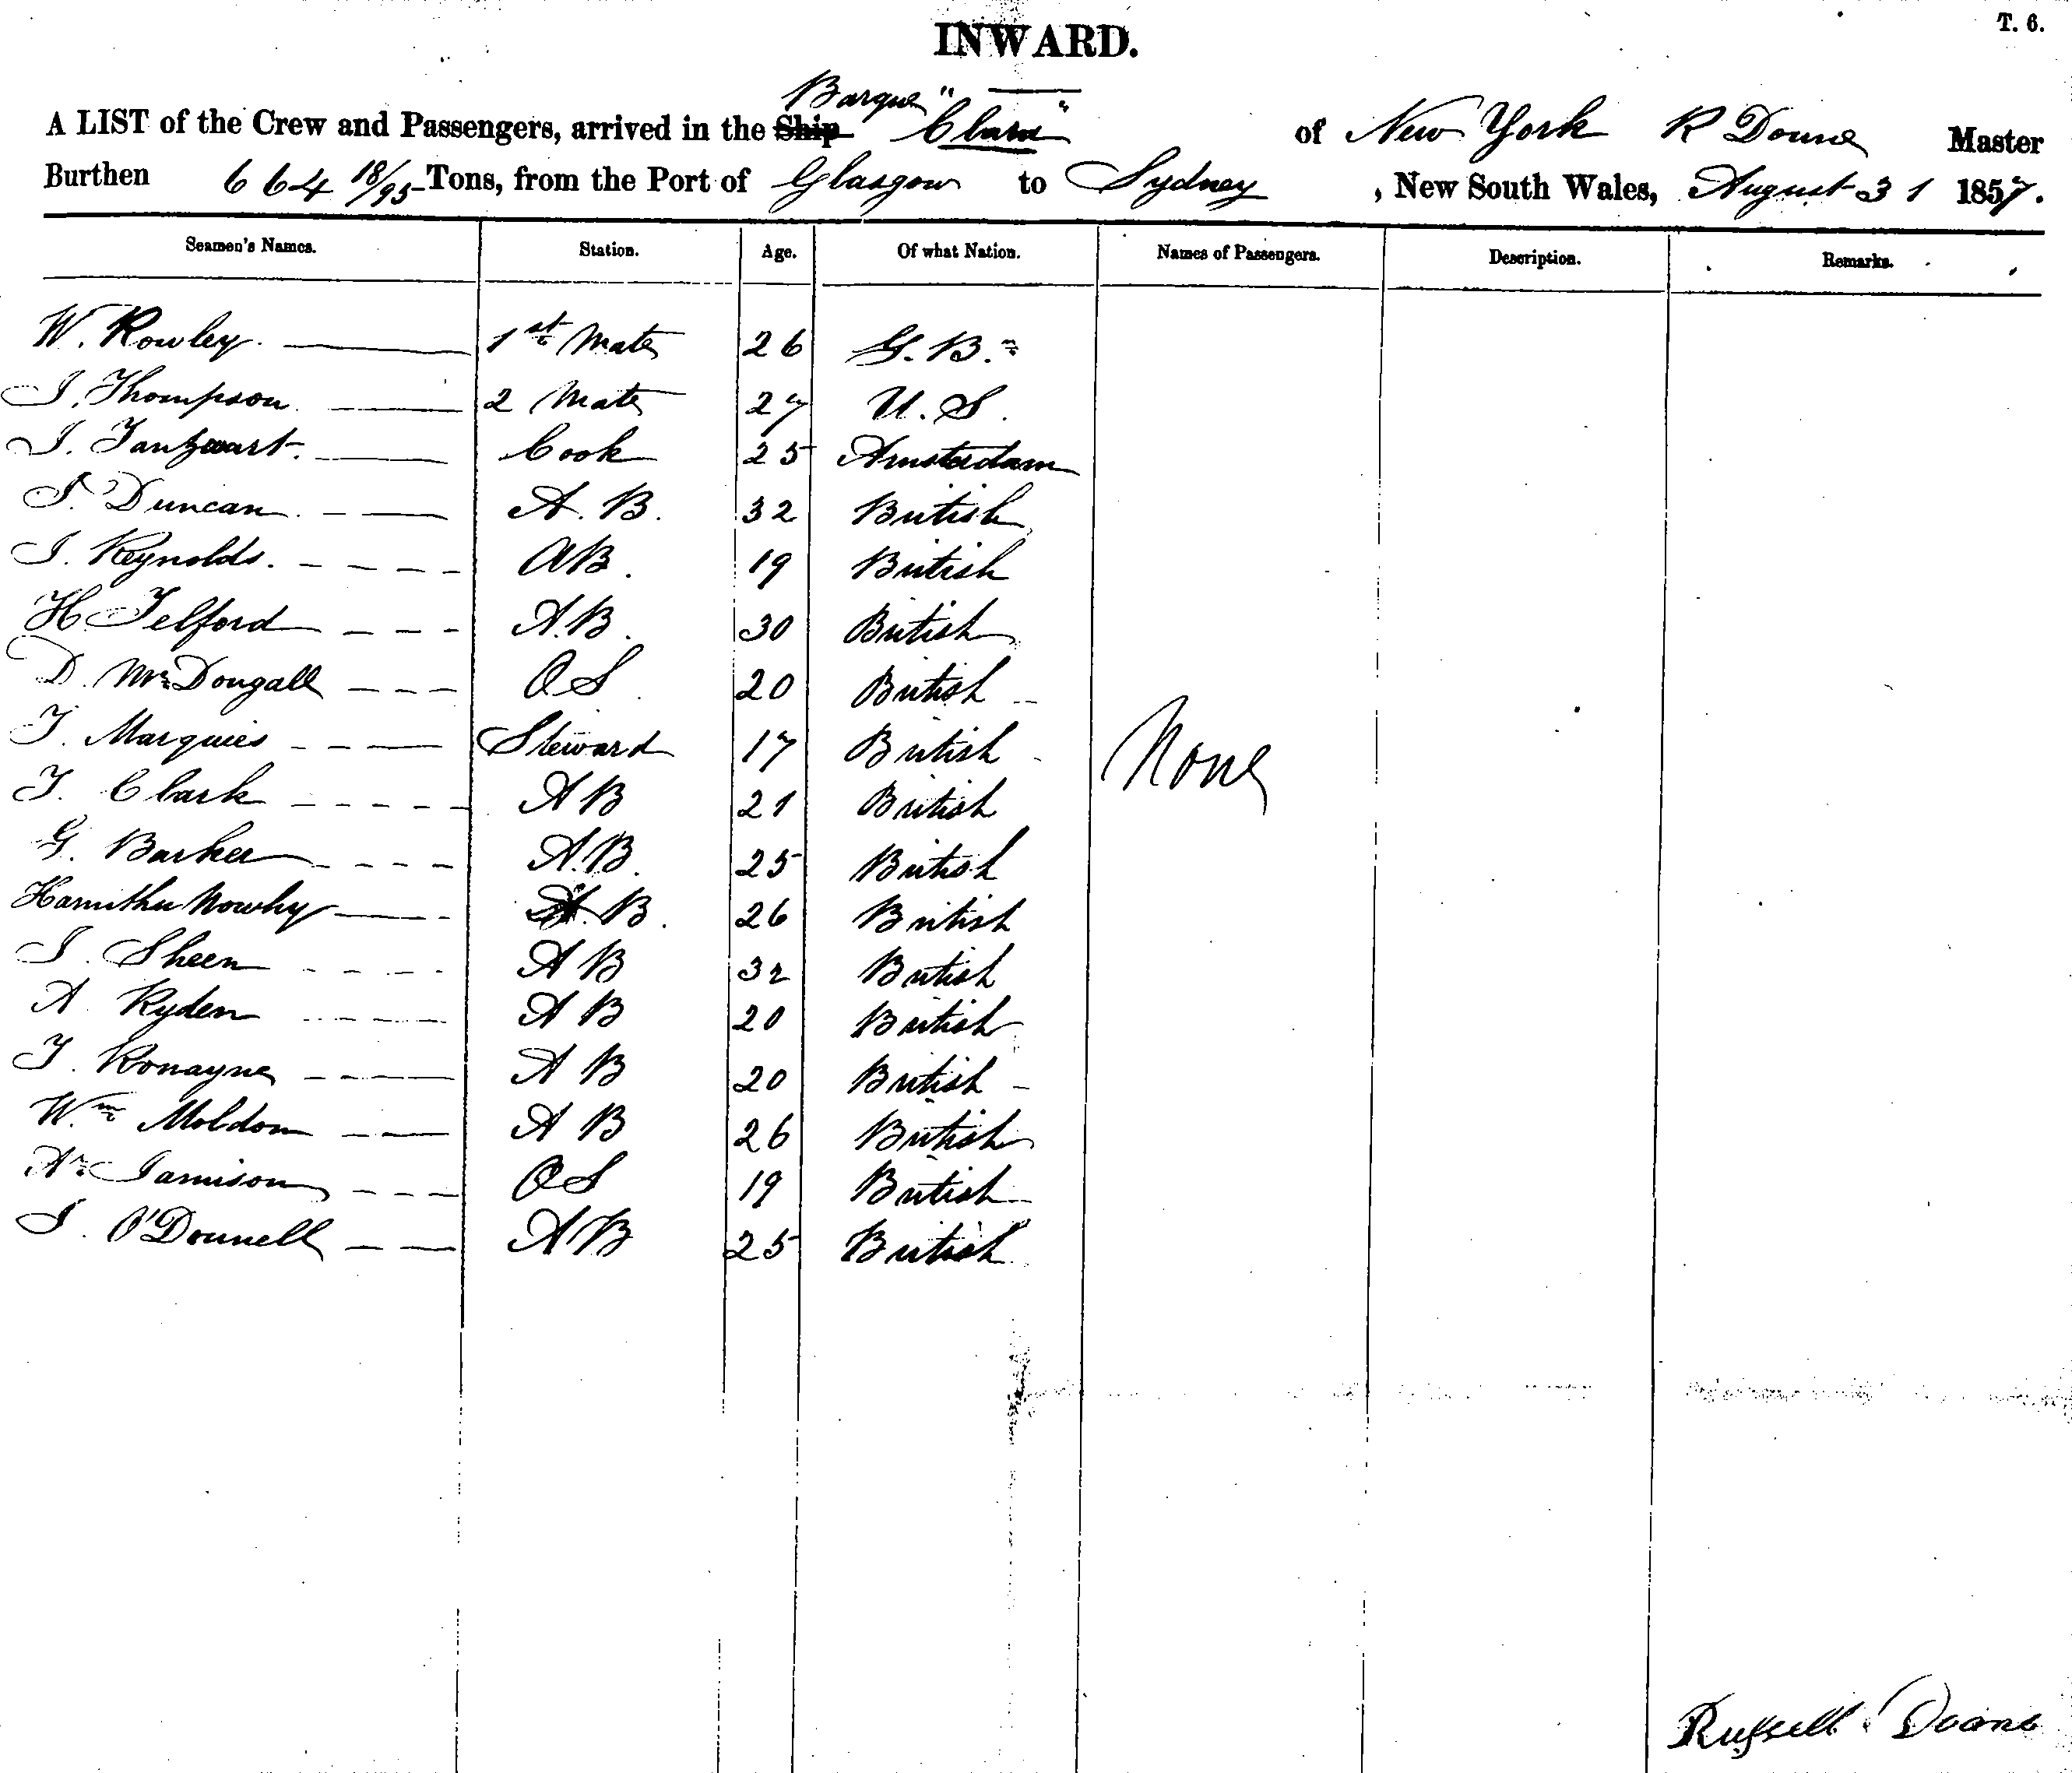 T. 6.
INWARD.
Barque
A LIST of the Crew and Passengers, arrived in the Ship "Clara" of New York R Doane Master
Burthen 664 18/95 Tons, from the Port of Glasgow to Sydney, New South Wales, August 31 1857.
Seamen's Names. Station. Age. Of what Nation. Names of Passengers. Description. Remarks.
W. Rowley 1st Mate 26 G. B.
J. Thompson 2 Mate 27 U. S.
J. Cook 25 Amsterdam
J. Duncan A. B. 32 British
J. Reynolds AB. 19 British
H Telford A.B. 30 British
D. McDougall O S 20 British
T. Marquies Steward 17 British
None
T. Clark A B 21 British
G. Barker A.B. 25 British
A. B. 26 British
J. Sheen A B 32 British
A Ryden A B 20 British
T. Ronayne A B 20 British
Wm Moldon A B 26 British
Jamison O S 19 British
J. O'Donnell A B 25 British
Russell Doane